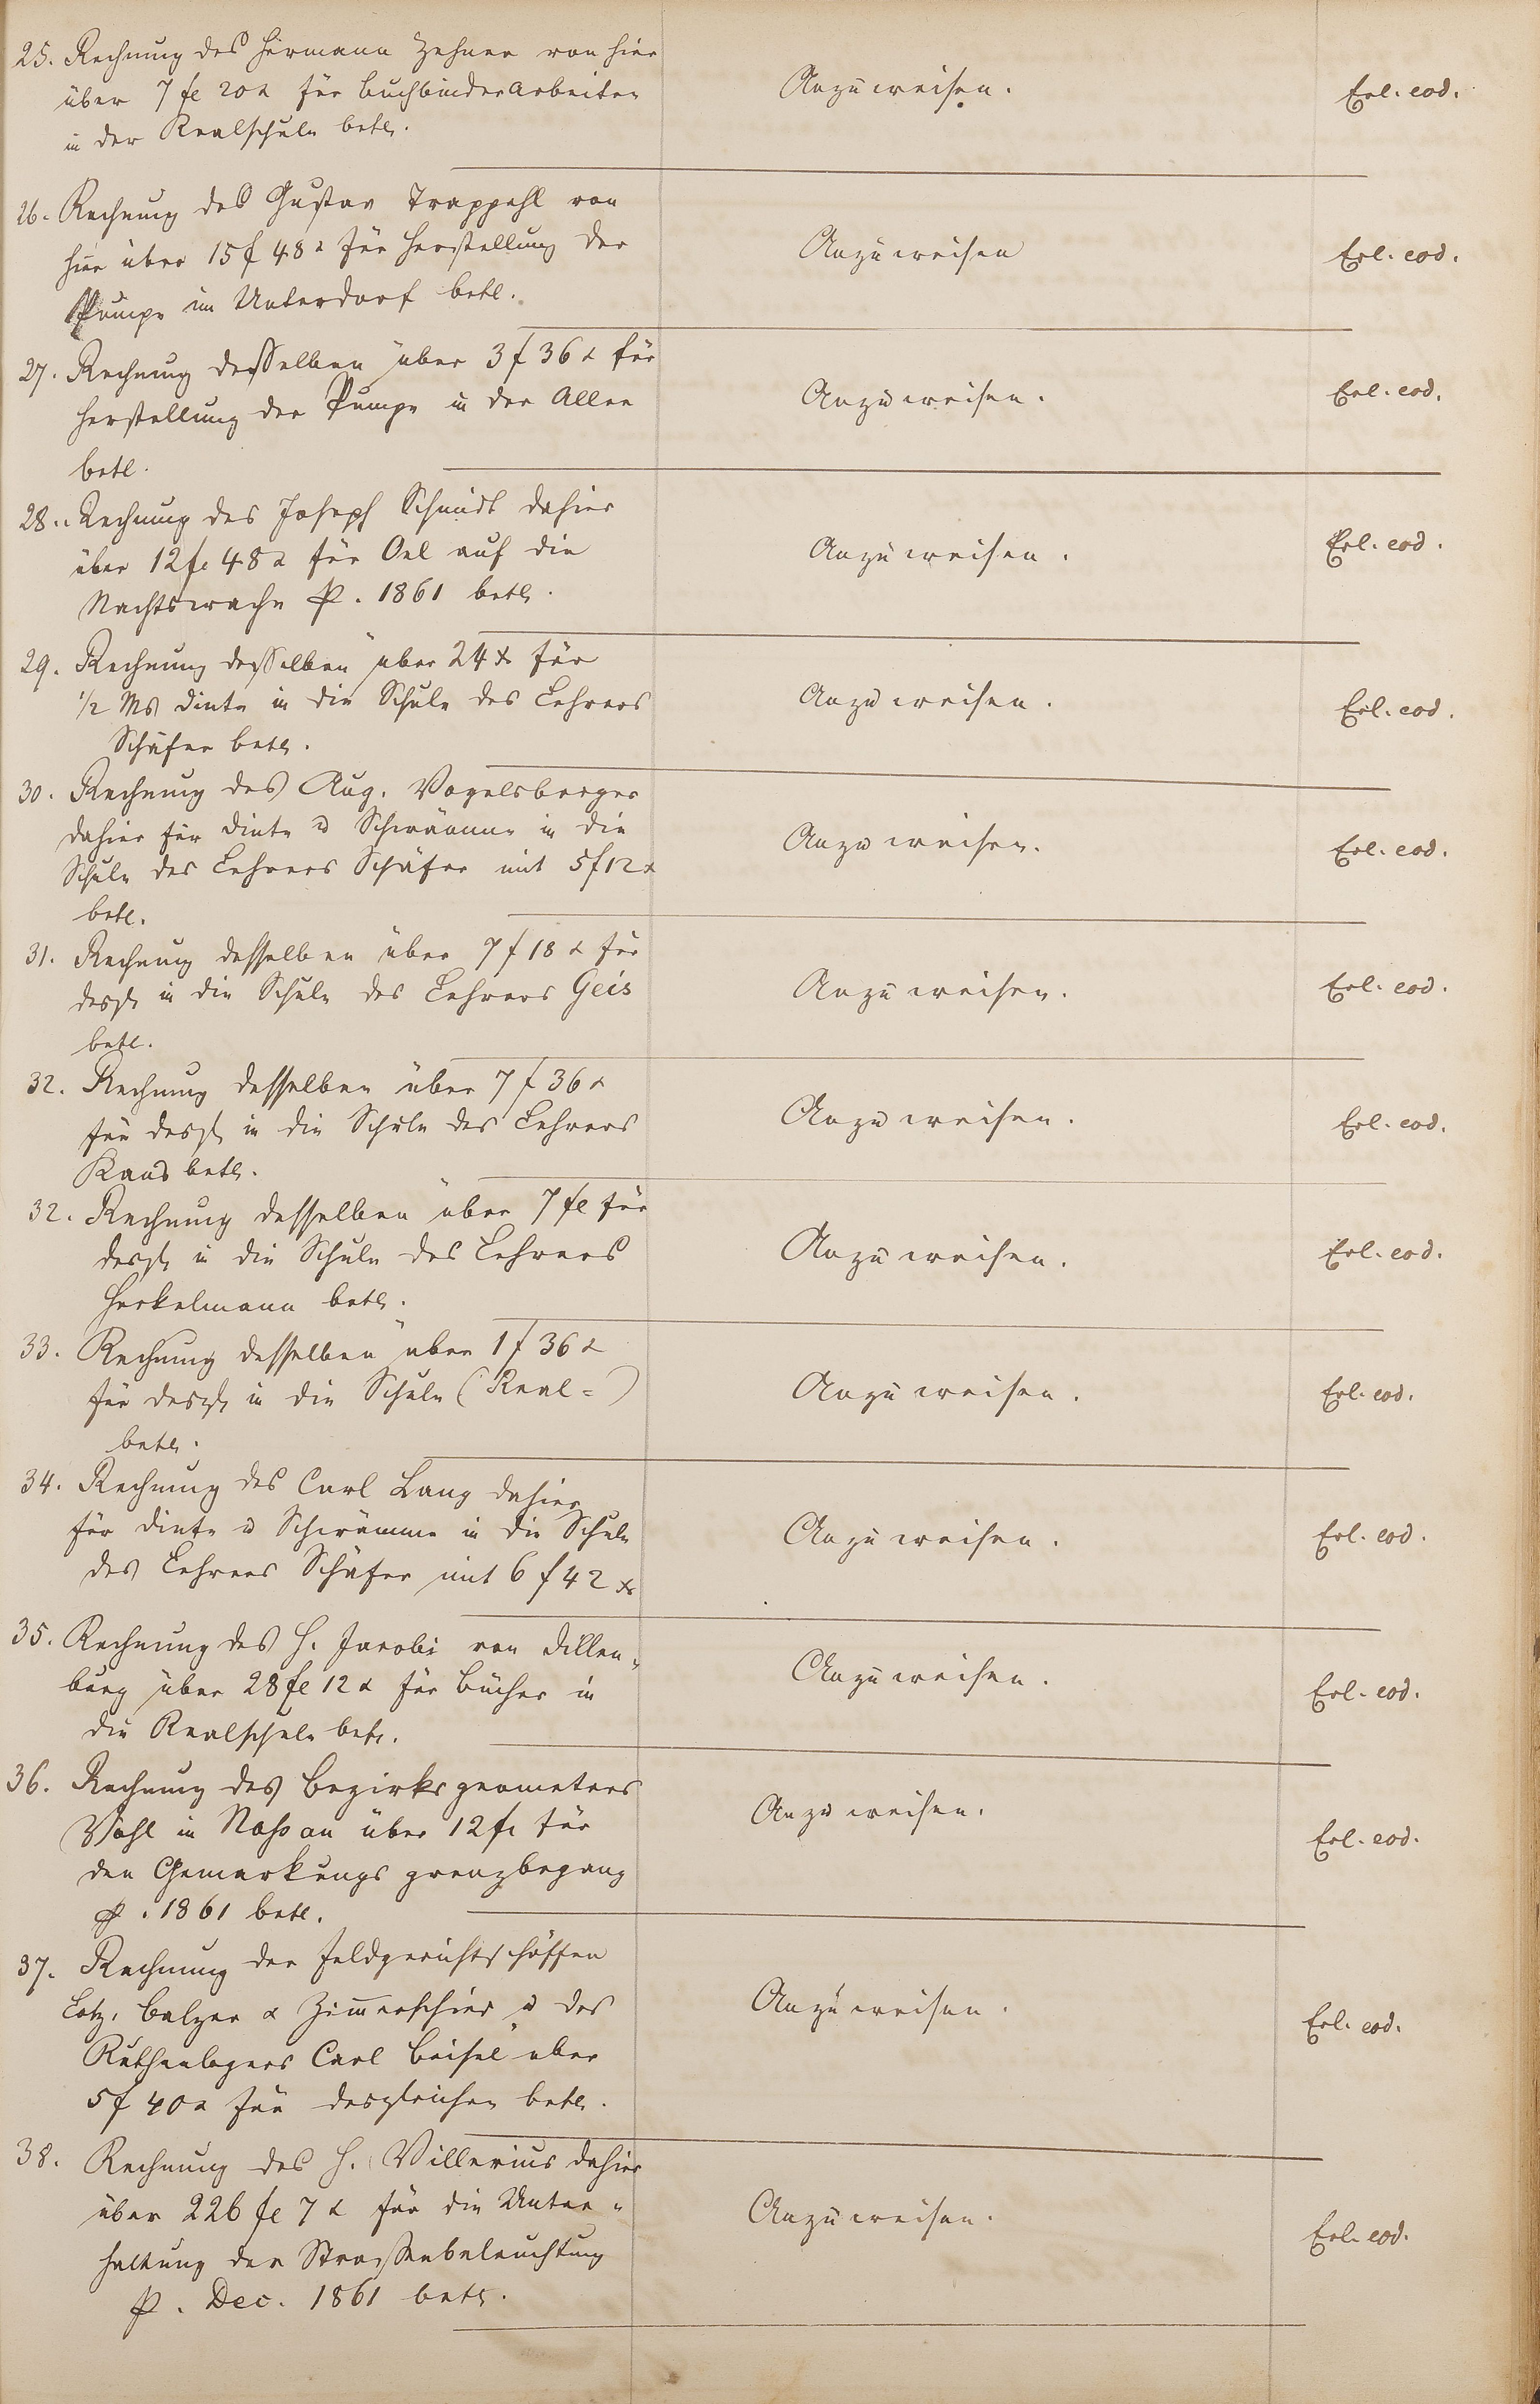 25. Rechnung des Hermann Zehner von hier
über 7 fl 20 x für Buchbinderarbeiten
in der Realschule betr.
Anzuweisen.
Erl. eod.
26. Rechnung des Gustav Trappehl von
hier über 15 f 48 x für Herstellung der
Pumpe im Unterdorf betr.
Anzuweisen
Erl. eod.
27. Rechnung desselben über 3 f 36 x für
Herstellung der Pumpe in der Allee
betr.
Anzuweisen.
Erl. eod.
28. Rechnung des Joseph Schmidt dahier
über 12 fl 48 x für Oel auf die
Nachtswache p. 1861 betr.
Anzuweisen.
Erl. eod.
29. Rechnung desselben über 24 xr für
1/2 Ms Dinte in die Schule des Lehrers
Schäfer betr.
Anzuweisen.
Erl. eod.
30. Rechnung des Aug. Vogelsberger
dahier für Dinte u Schwämme in die
Schule des Lehrers Schäfer mit 5 f 12 x
betr.
Anzuweisen.
Erl. eod.
31. Rechnung desselben über 7 f 18 x für
desgl in die Schule des Lehrers Geis
betr.
Anzuweisen.
Erl. eod.
32. Rechnung desselben über 7 f 36 x
für desgl in die Schule des Lehrers
Kaus betr.
Anzuweisen.
Erl. eod.
32. Rechnung desselben über 7 fl für
desgl in die Schule des Lehrers
Herkelmann betr.
Anzuweisen.
Erl. eod.
33. Rechnung desselben über 1 f 36 x
für desgl in die Schule (Real=)
betr.
Anzuweisen.
Erl. eod.
34. Rechnung des Carl Lang dahier
für Dinte u Schwämme in die Schule
des Lehrers Schäfer mit 6 f 42 xr
Anzuweisen.
Erl. eod.
35. Rechnung des H. Jacobi von Dillen„
burg über 28 fl 12 x für Bücher in
die Realschule betr.
Anzuweisen.
Erl. eod.
36. Rechnung des Bezirksgeometers
Vohl in Nassau über 12 fl für
den Gemarkungsgrenzbegang
p. 1861 betr.
Anzuweisen.
Erl. eod.
37. Rechnung der Feldgerichtschöffen
Lotz, Balzer & Zimmerschied u des
Ruthenlegers Carl Beisel über
5 f 40 x für desgleichen betr.
Anzuweisen.
Erl. eod.
38. Rechnung des H. Villerius dahier
über 226 fl 7 x für die Unter„
haltung der Strassenbeleuchtung
p. Dec. 1861 betr.
Anzuweisen.
Erl. eod.